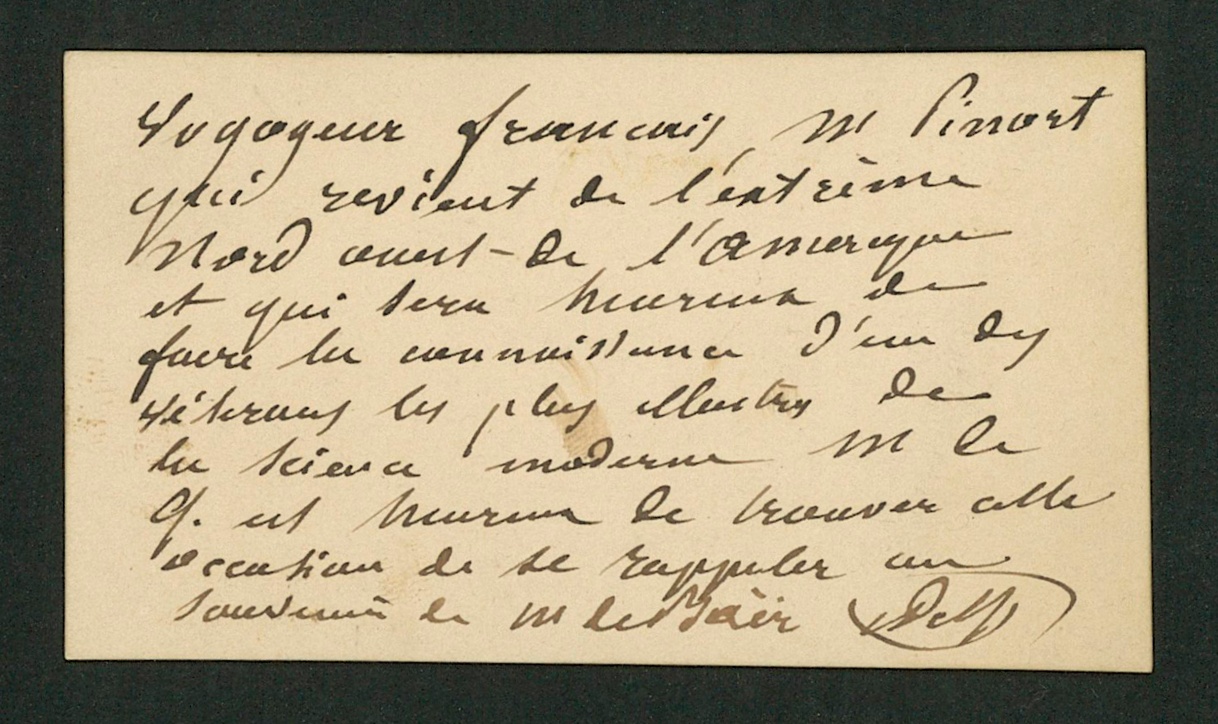 voyageur francais, M Pinart
qui revient de l'extrème
Nord ouest-de l'amerique
et qui sera heureux de
faire la connaissance d'un des
vétérans les plus illustres de
la science moderne M de
Q. est heureux de trouver cette
occasion de se rappeler au
souvenir de M de Baër